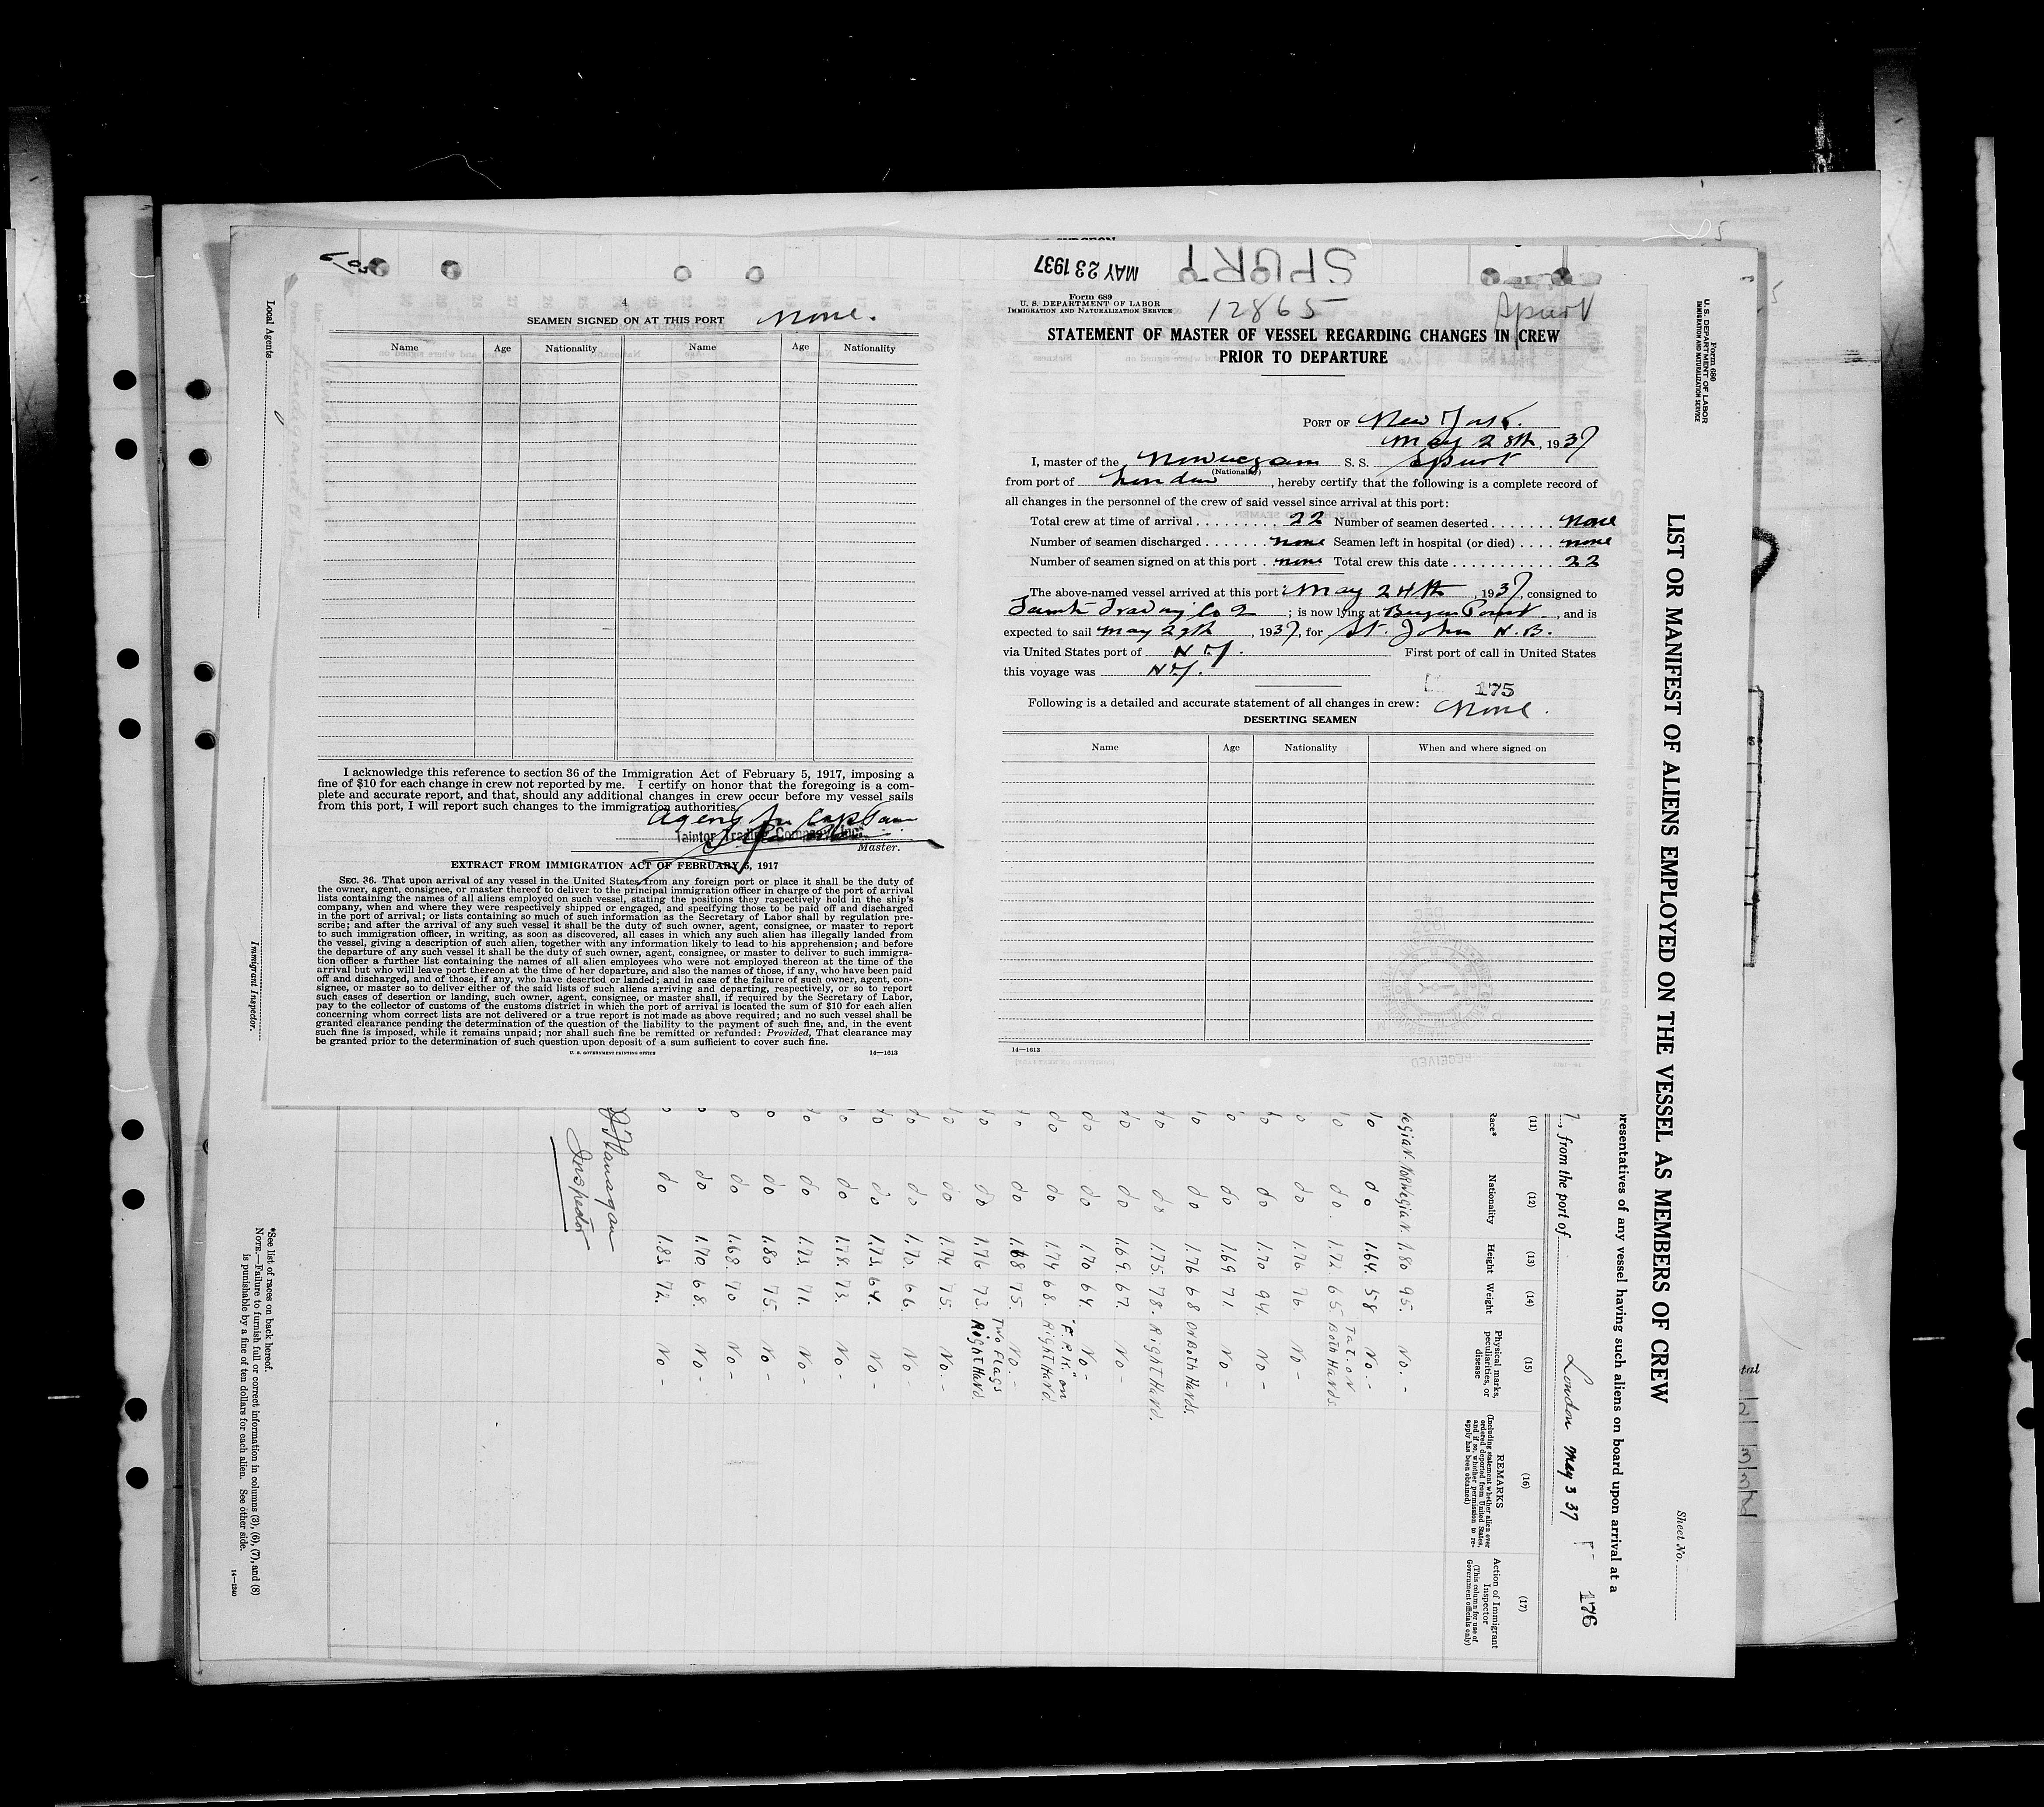 MAY 23 1937
SPURT
4
SEAMEN SIGNED ON AT THIS PORT None.
Name Age Nationality Name Age Nationality
I acknowledge this reference to section 36 of the Immigration Act of February 5, 1917, imposing a
fine of $10 for each change in crew not reported by me. I certify on honor that the foregoing is a com-
plete and accurate report, and that, should any additional changes in crew occur before my vessel sails
from this port, I will report such changes to the immigration authorities.
Agent for Captain
Taintor Trading Company, Inc.
Master.
EXTRACT FROM IMMIGRATION ACT OF FEBRUARY 5, 1917
SEC. 36. That upon arrival of any vessel in the United States from any foreign port or place it shall be the duty of
the owner, agent, consignee, or master thereof to deliver to the principal immigration officer in charge of the port of arrival
lists containing the names of all aliens employed on such vessel, stating the positions they respectively hold in the ship's
company, when and where they were respectively shipped or engaged, and specifying those to be paid off and discharged
in the port of arrival; or lists containing so much of such information as the Secretary of Labor shall by regulation pre-
scribe; and after the arrival of any such vessel it shall be the duty of such owner, agent, consignee, or master to report
to such immigration officer, in writing, as soon as discovered, all cases in which any such alien has illegally landed from
the vessel, giving a description of such alien, together with any information likely to lead to his apprehension; and before
the departure of any such vessel it shall be the duty of such owner, agent, consignee, or master to deliver to such immigra-
tion officer a further list containing the names of all alien employees who were not employed thereon at the time of the
arrival but who will leave port thereon at the time of her departure, and also the names of those, if any, who have been paid
off and discharged, and of those, if any, who have deserted or landed; and in case of the failure of such owner, agent, con-
signee, or master so to deliver either of the said lists of such aliens arriving and departing, respectively, or so to report
such cases of desertion or landing, such owner, agent, consignee, or master shall, if required by the Secretary of Labor,
pay to the collector of customs of the customs district in which the port of arrival is located the sum of $10 for each alien
concerning whom correct lists are not delivered or a true report is not made as above required; and no such vessel shall be
granted clearance pending the determination of the question of the liability to the payment of such fine, and, in the event
such fine is imposed, while it remains unpaid; nor shall such fine be remitted or refunded: Provided, That clearance may
be granted prior to the determination of such question upon deposit of a sum sufficient to cover such fine.
U. S. GOVERNMENT PRINTING OFFICE 14—1613
Form 689
U. S. DEPARTMENT OF LABOR
IMMIGRATION AND NATURALIZATION SERVICE
12865 Spurt
STATEMENT OF MASTER OF VESSEL REGARDING CHANGES IN CREW
PRIOR TO DEPARTURE
PORT OF New York.
May 28th, 1937
I, master of the Norwegian S. S. Spurt
(Nationality)
from port of London, hereby certify that the following is a complete record of
all changes in the personnel of the crew of said vessel since arrival at this port:
Total crew at time of arrival 22 Number of seamen deserted None
Number of seamen discharged none Seamen left in hospital (or died) none
Number of seamen signed on at this port none Total crew this date 22
The above-named vessel arrived at this port May 24th, 1937, consigned to
Trading Co ; is now lying at Bergen Point, and is
expected to sail May 29th, 1937, for St. John N.B.
via United States port of N.Y. First port of call in United States
this voyage was N.Y.
175
Following is a detailed and accurate statement of all changes in crew: None.
DESERTING SEAMEN
Name Age Nationality When and where signed on
14—1613
Form 680
U. S. DEPARTMENT OF LABOR
IMMIGRATION AND NATURALIZATION SERVICE
LIST OR MANIFEST OF ALIENS EMPLOYED ON THE VESSEL AS MEMBERS OF CREW
Sheet No.
resentatives of any vessel having such aliens on board upon arrival at a
, from the port of London May 3 37
176
(11) (12) (13) (14) (15) (16) (17)
Race* Nationality Height Weight Physical marks, peculiarities, or disease REMARKS (Including statement whether alien ever ordered deported from United States, and if so, whether permission to re-apply has been obtained) Action of Immigrant Inspector (This column for use of Government officials only)
egian. Norwegian 1.80 95. No. -
do do 1.64. 58 No. -
do do. 1.72 65. Tat. on Both Hands.
do do 1.76 76. No -
do do 1.70 94. No -
do do 1.69 71. No -
do do 1.76 68 On Both Hands.
do do 1.75. 78. Right Hand.
do do 1.69. 67. No -
do do 1.70 64. No -
do do 1.74 68. "F.R.K." on Right Hand.
do do 1.68 75. No. -
do do 1.76 73. Two Flags Right Hand
do do 1.74. 75. No. -
do do 1.70. 66. No -
do do 1.73. 64. No -
do do 1.78. 73. No -
do do 1.73. 71. No -
do do 1.80 75. No -
do do 1.68. 70 No -
do do 1.70. 68. No -
do do 1.83 72. No -
Flanagan
Inspector
Local Agents
Immigrant Inspector.
*See list of races on back hereof.
NOTE.—Failure to furnish full or correct information in columns (3), (6), (7), and (8)
is punishable by a fine of ten dollars for each alien. See other side.
14—1240